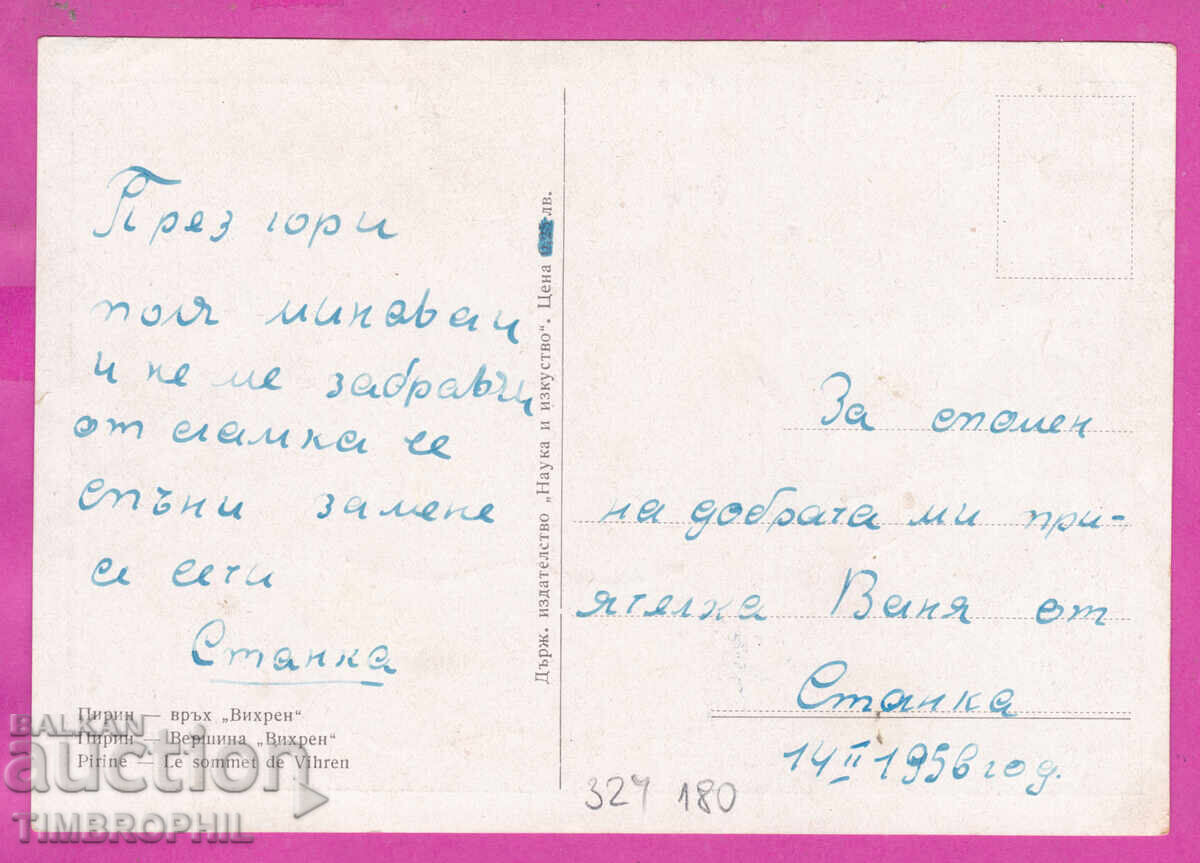 През гори
поля минаваи
и не ме забравяи
от сламка се
спъни замене
се сети
Станка
Пирин — връх „Вихрен“
Пирин — Вершина „Вихрен“
Pirine — Le sommet de Vihren
Държ. издателство „Наука и изкуство“. Цена лв.
За спомен
на добрата ми при-
ятелка Ваня от
Станка
14 II 1956 год.
324 180
BALKAN
auction
TIMBROPHIL